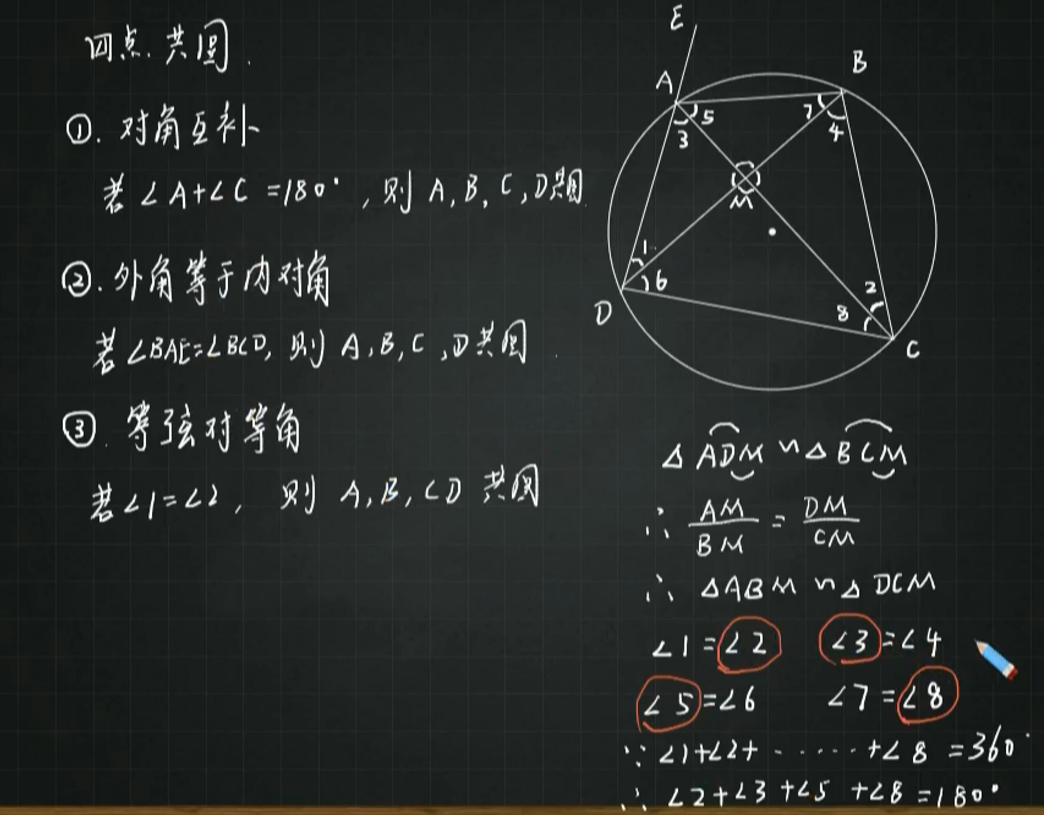 四点共圆.
①. 对角互补
若∠A+∠C=180°,则A,B,C,D共圆
②.外角等于内对角
若∠BAE=∠BCD,则A,B,C,D共圆.
③.等弦对等角
若∠1=∠2,则A,B,CD共圆
E
A
B
5
7
3
4
M
1
6
2
8
D
C
△ADM∽△BCM
∴ AM/BM = DM/CM
∴ △ABM∽△DCM
∠1=∠2 ∠3=∠4
∠5=∠6 ∠7=∠8
∵ ∠1+∠2+······+∠8=360°
∴ ∠2+∠3+∠5+∠8=180°